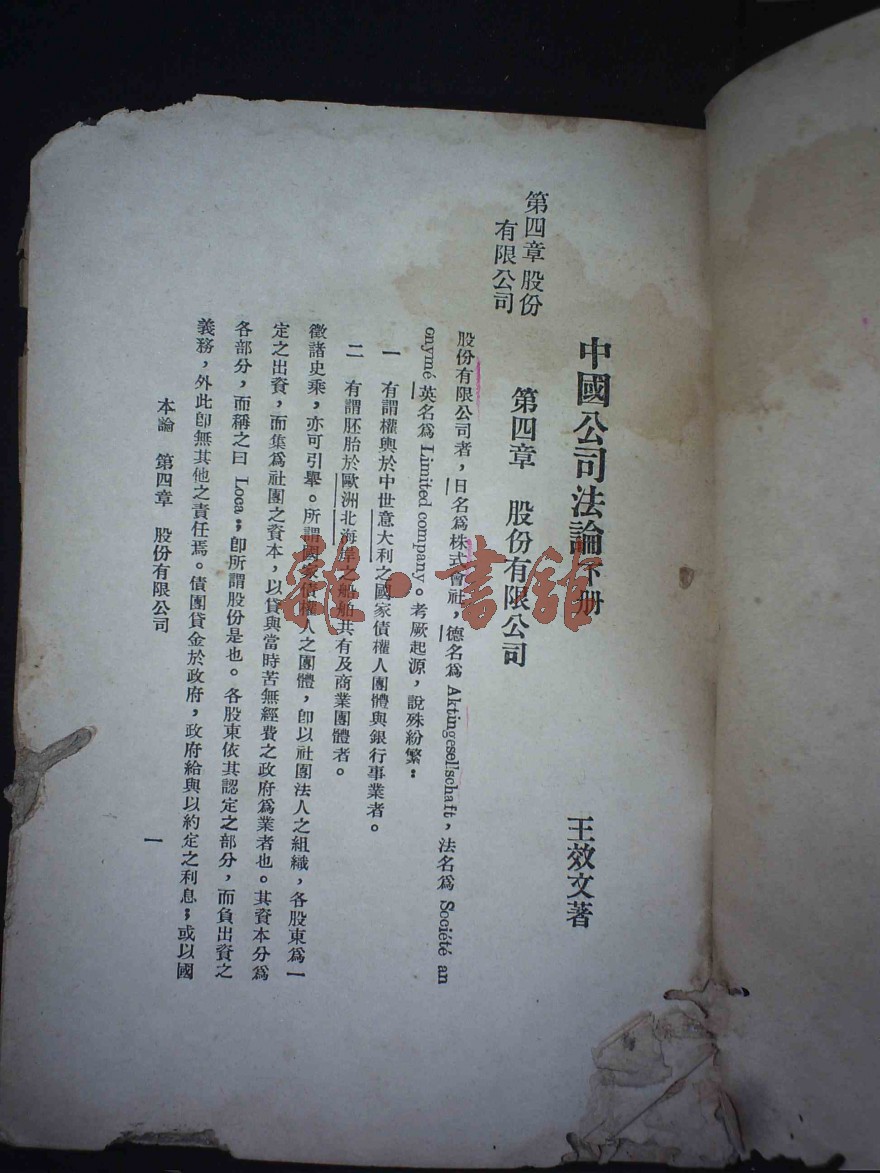 中國公司法論下册
王效文著
第四章 股份
有限公司
第四章 股份有限公司
股份有限公司者，日名爲株式會社，德名爲 Aktingesellschaft，法名爲 Société an
onymé 英名爲 Limited company。考厥起源，說殊紛繁：
一 有謂權輿於中世意大利之國家債權人團體與銀行事業者。
二 有謂胚胎於歐洲北海岸之船舶共有及商業團體者。
徵諸史乘，亦可引舉。所謂國家債權人之團體，卽以社團法人之組織，各股東爲一
定之出資，而集爲社團之資本，以貸與當時苦無經費之政府爲業者也。其資本分爲
各部分，而稱之曰 Loca，卽所謂股份是也。各股東依其認定之部分，而負出資之
義務，外此卽無其他之責任焉。債團貸金於政府，政府給與以約定之利息；或以國
本論 第四章 股份有限公司
一
雜·書館